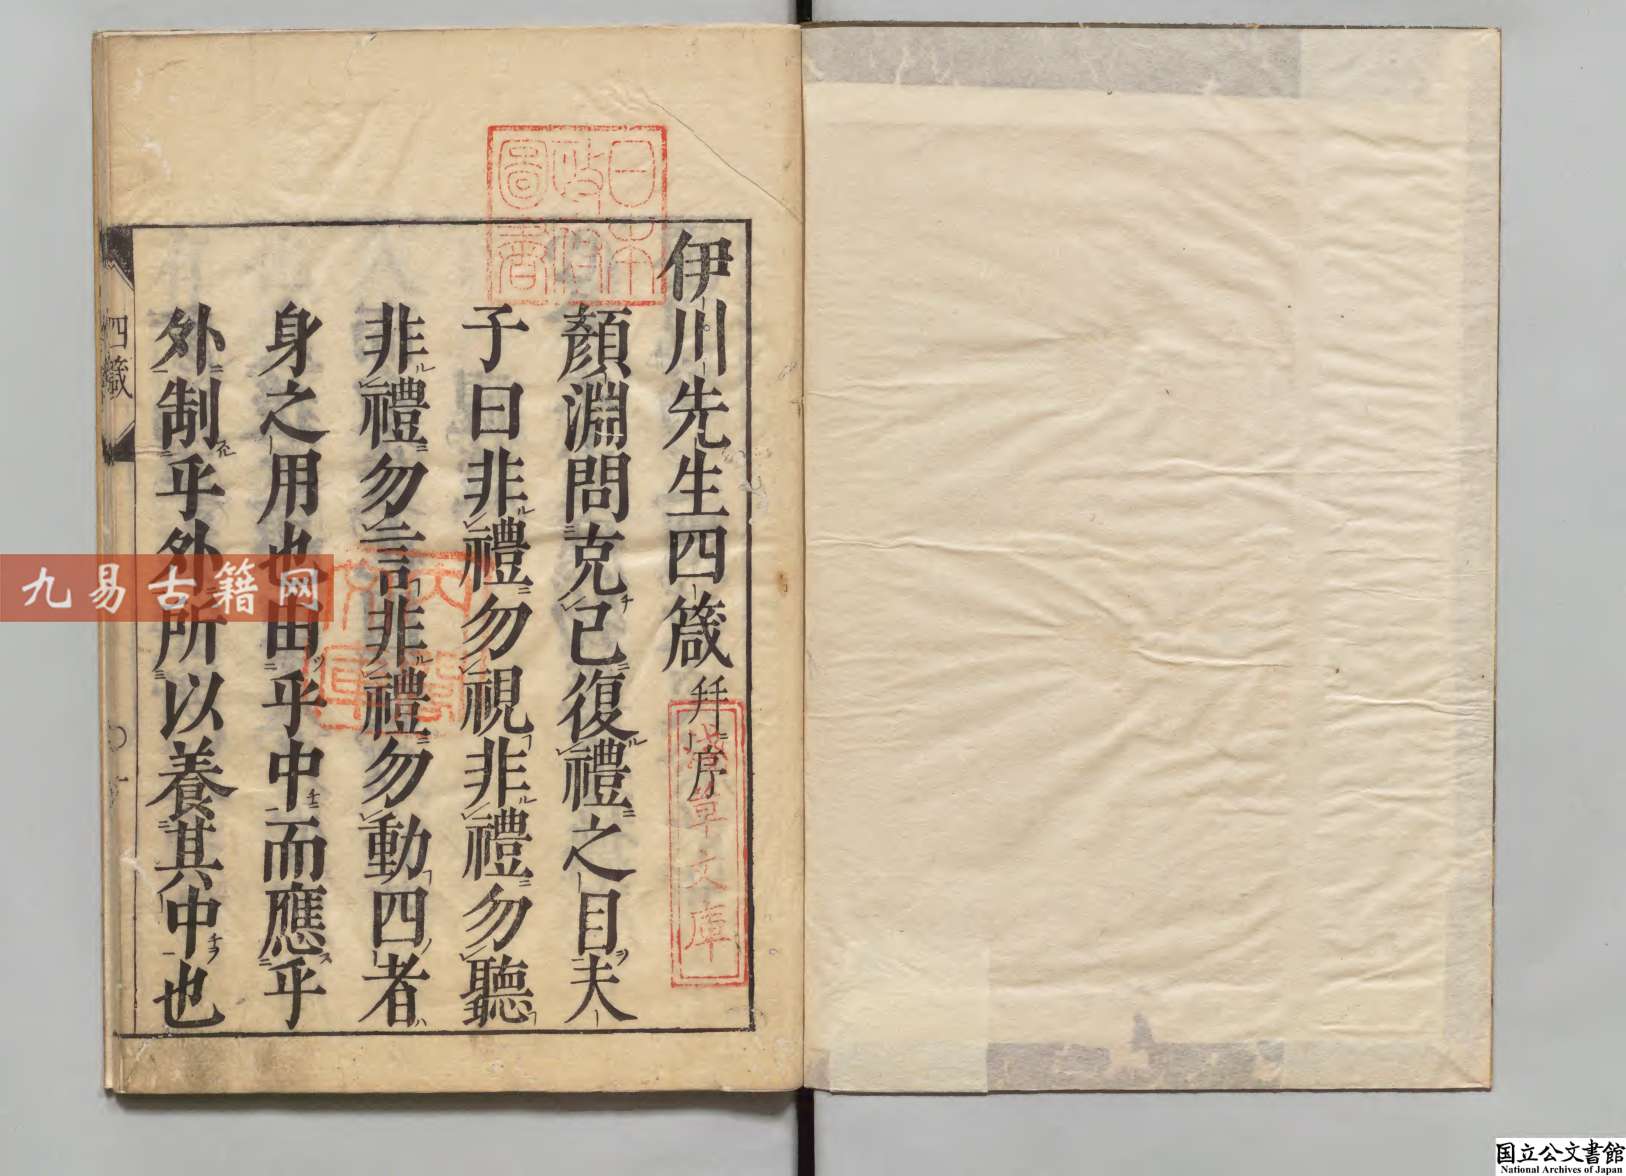 伊川先生四箴 幷序
顏淵問克己復禮之目夫
子曰非禮勿視非禮勿聽
非禮勿言非禮勿動四者
身之用也由乎中而應乎
外制乎外所以養其中也
四箴
日本
政府
圖書
淺草文庫
九易古籍网
国立公文書館
National Archives of Japan